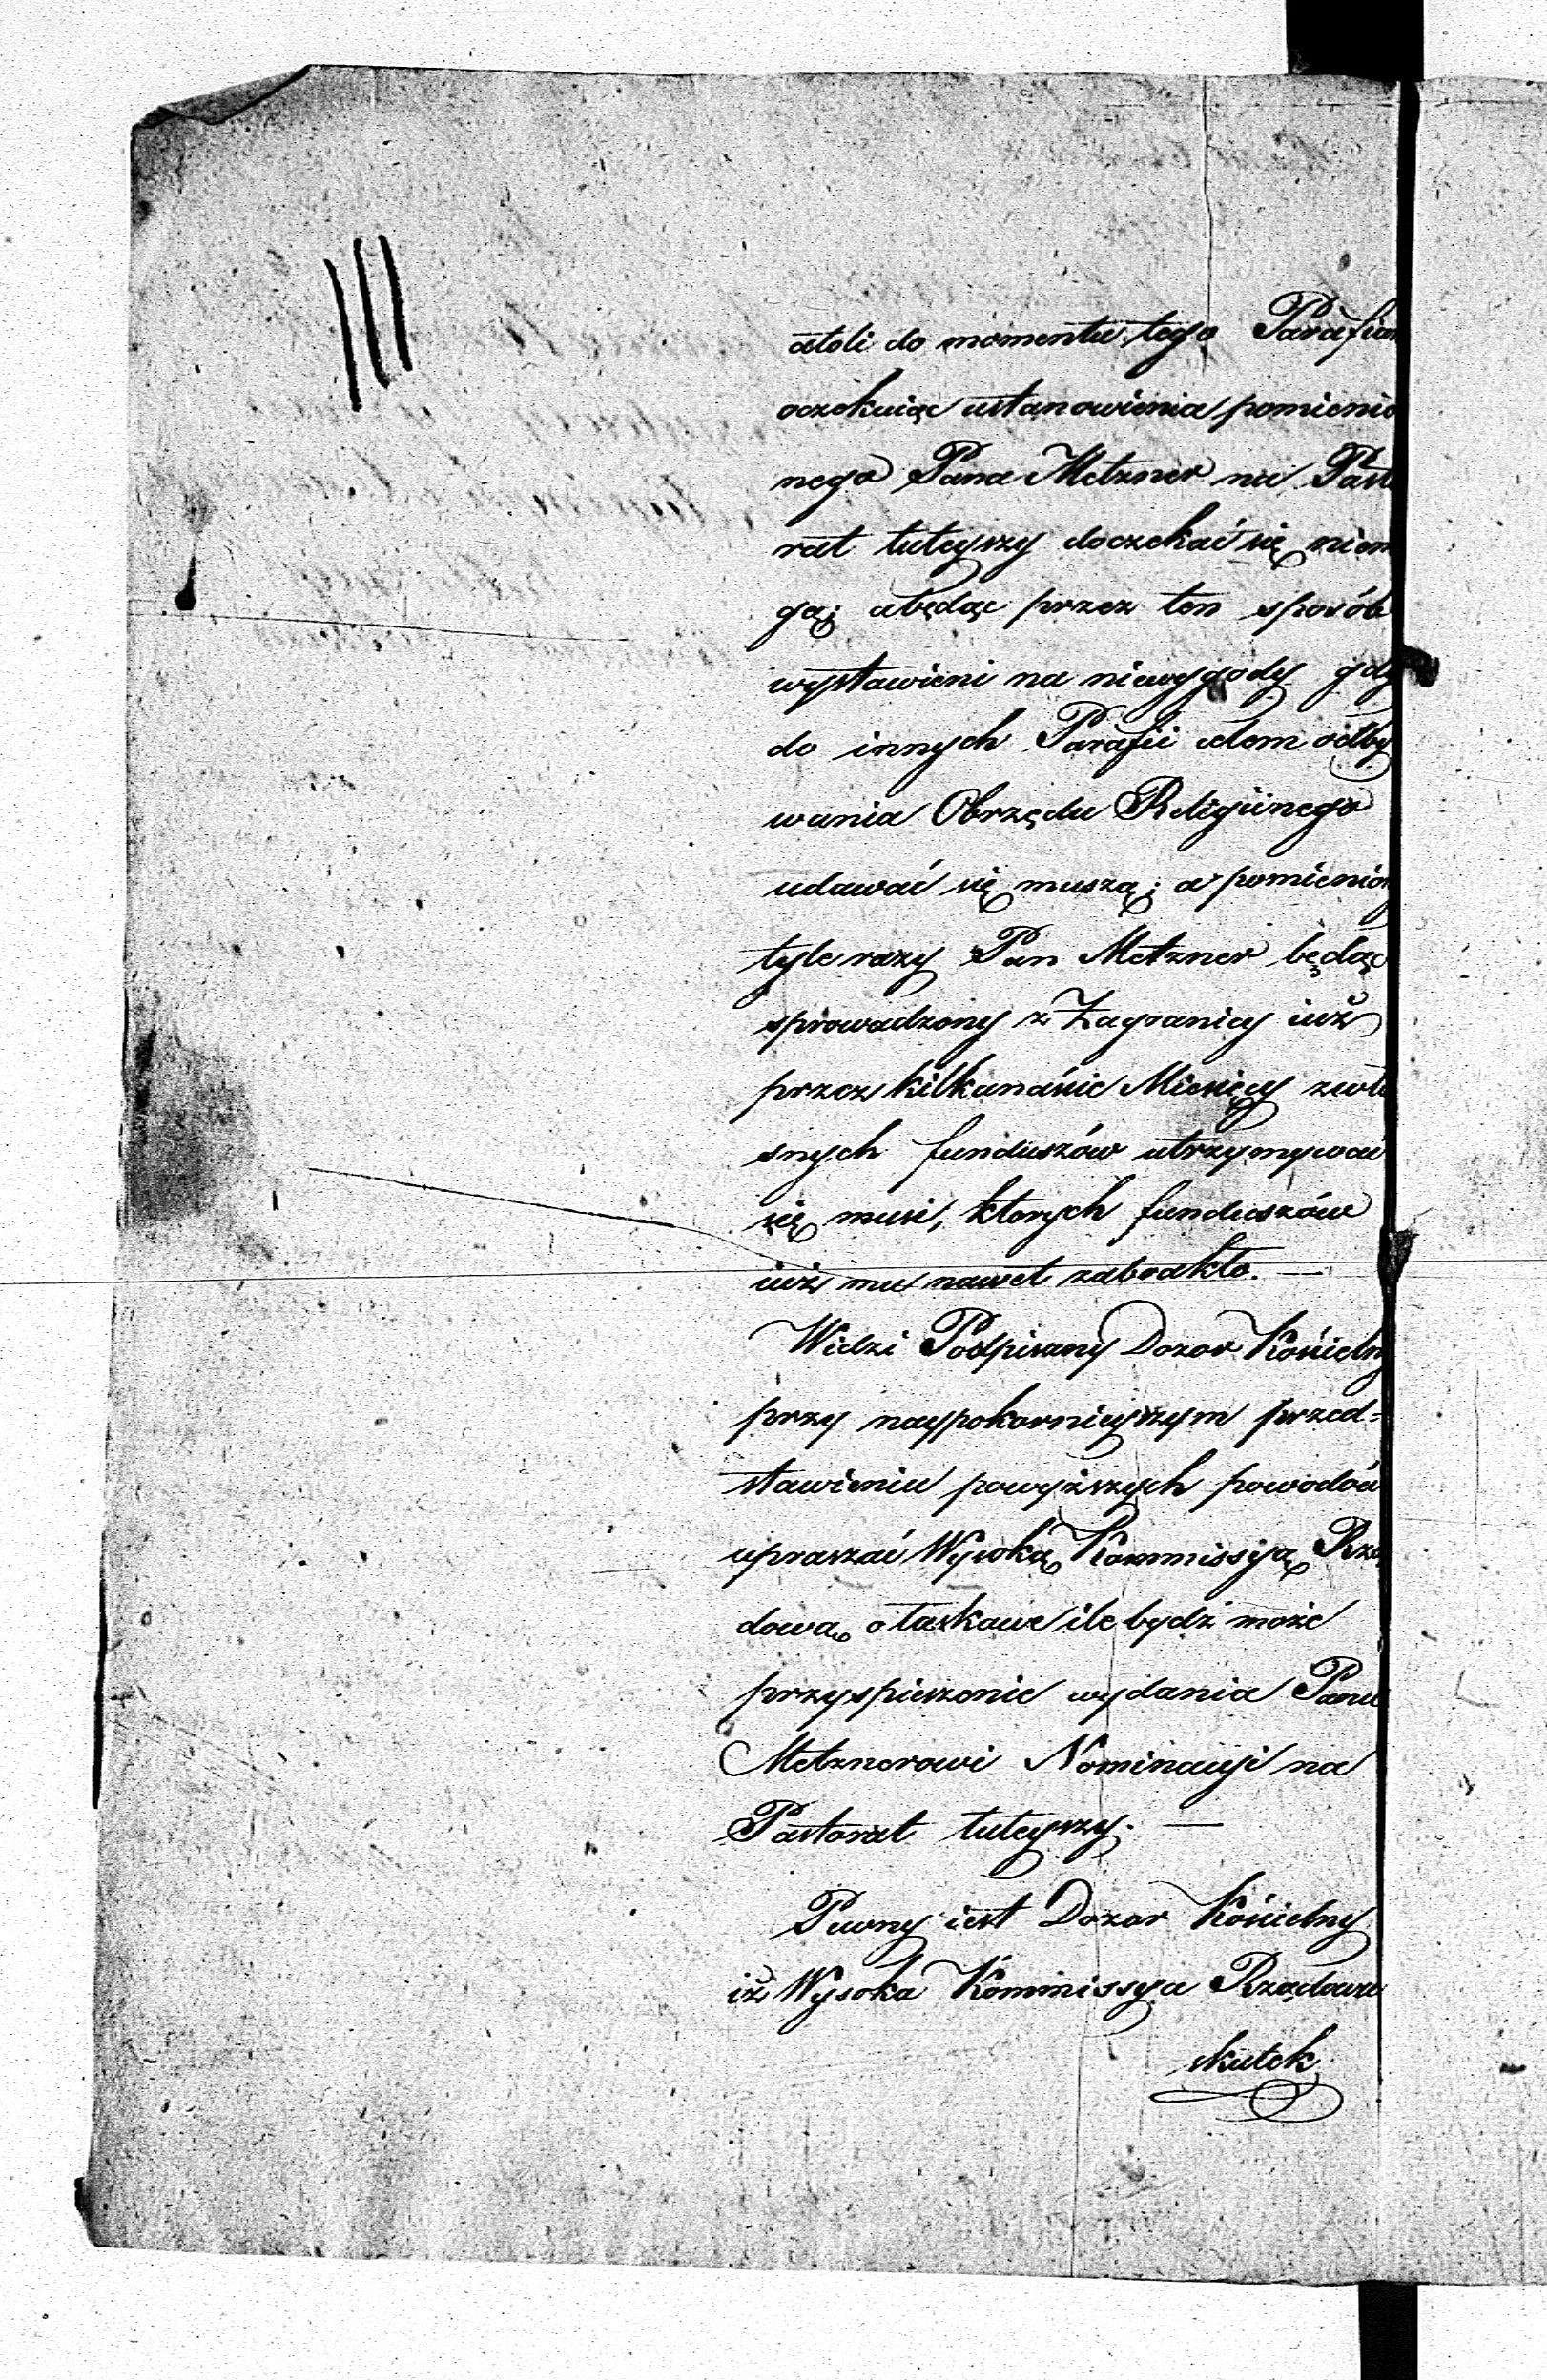 atoli do momentu tego Parafian
oczekuiąc ustanowienia pomienio
nego Pana Metzner na Pasto
rat tuteyszy doczekać się niem
gą; a będąc przez ten sposób
wystawieni na niewygody gdy
do innych Parafii celem odby
wania Obrzędu Religiinego
udawać się muszą; a pomienion
tyle razy Pan Metzner będąc
sprowadzony z Zagranicy iuż
przez kilkanaście Miesięcy zwła
snych funduszów utrzymywać
się musi, ktorych funduszów
iuż mu nawet zabrakło. —
Widzi Podpisany Dozor Kościelny
przy naypokornieyszym przed=
stawieniu powyższych powodów
upraszać Wysoką Kommissyą Rzą
dową o łaskawe ile bydź może
przyspieszenie wydania Panu
Metznerowi Nominacyi na
Pastorat tuteyszy. —
Pewny iest Dozor Kościelny
iż Wysoka Kommissya Rządowa
skutek